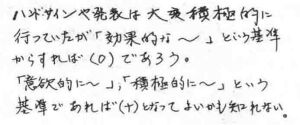 ハンドサインや発表は大変積極的に
行っていたが「効果的な〜」という基準
からすれば（0）であろう。
「意欲的に〜」,「積極的に〜」という
基準であれば（+）となってよいかも知れない。